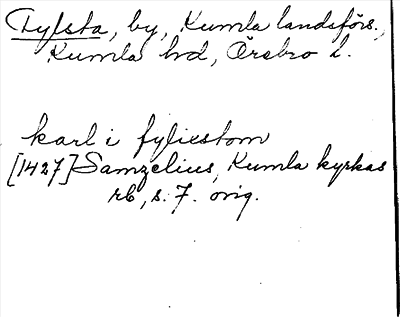 Fylsta, by, Kumla landsförs.,
Kumla hd, Örebro l.
karl i fyliestom
[1427] Samzelius, Kumla kyrkas
rb, s. 7. orig.